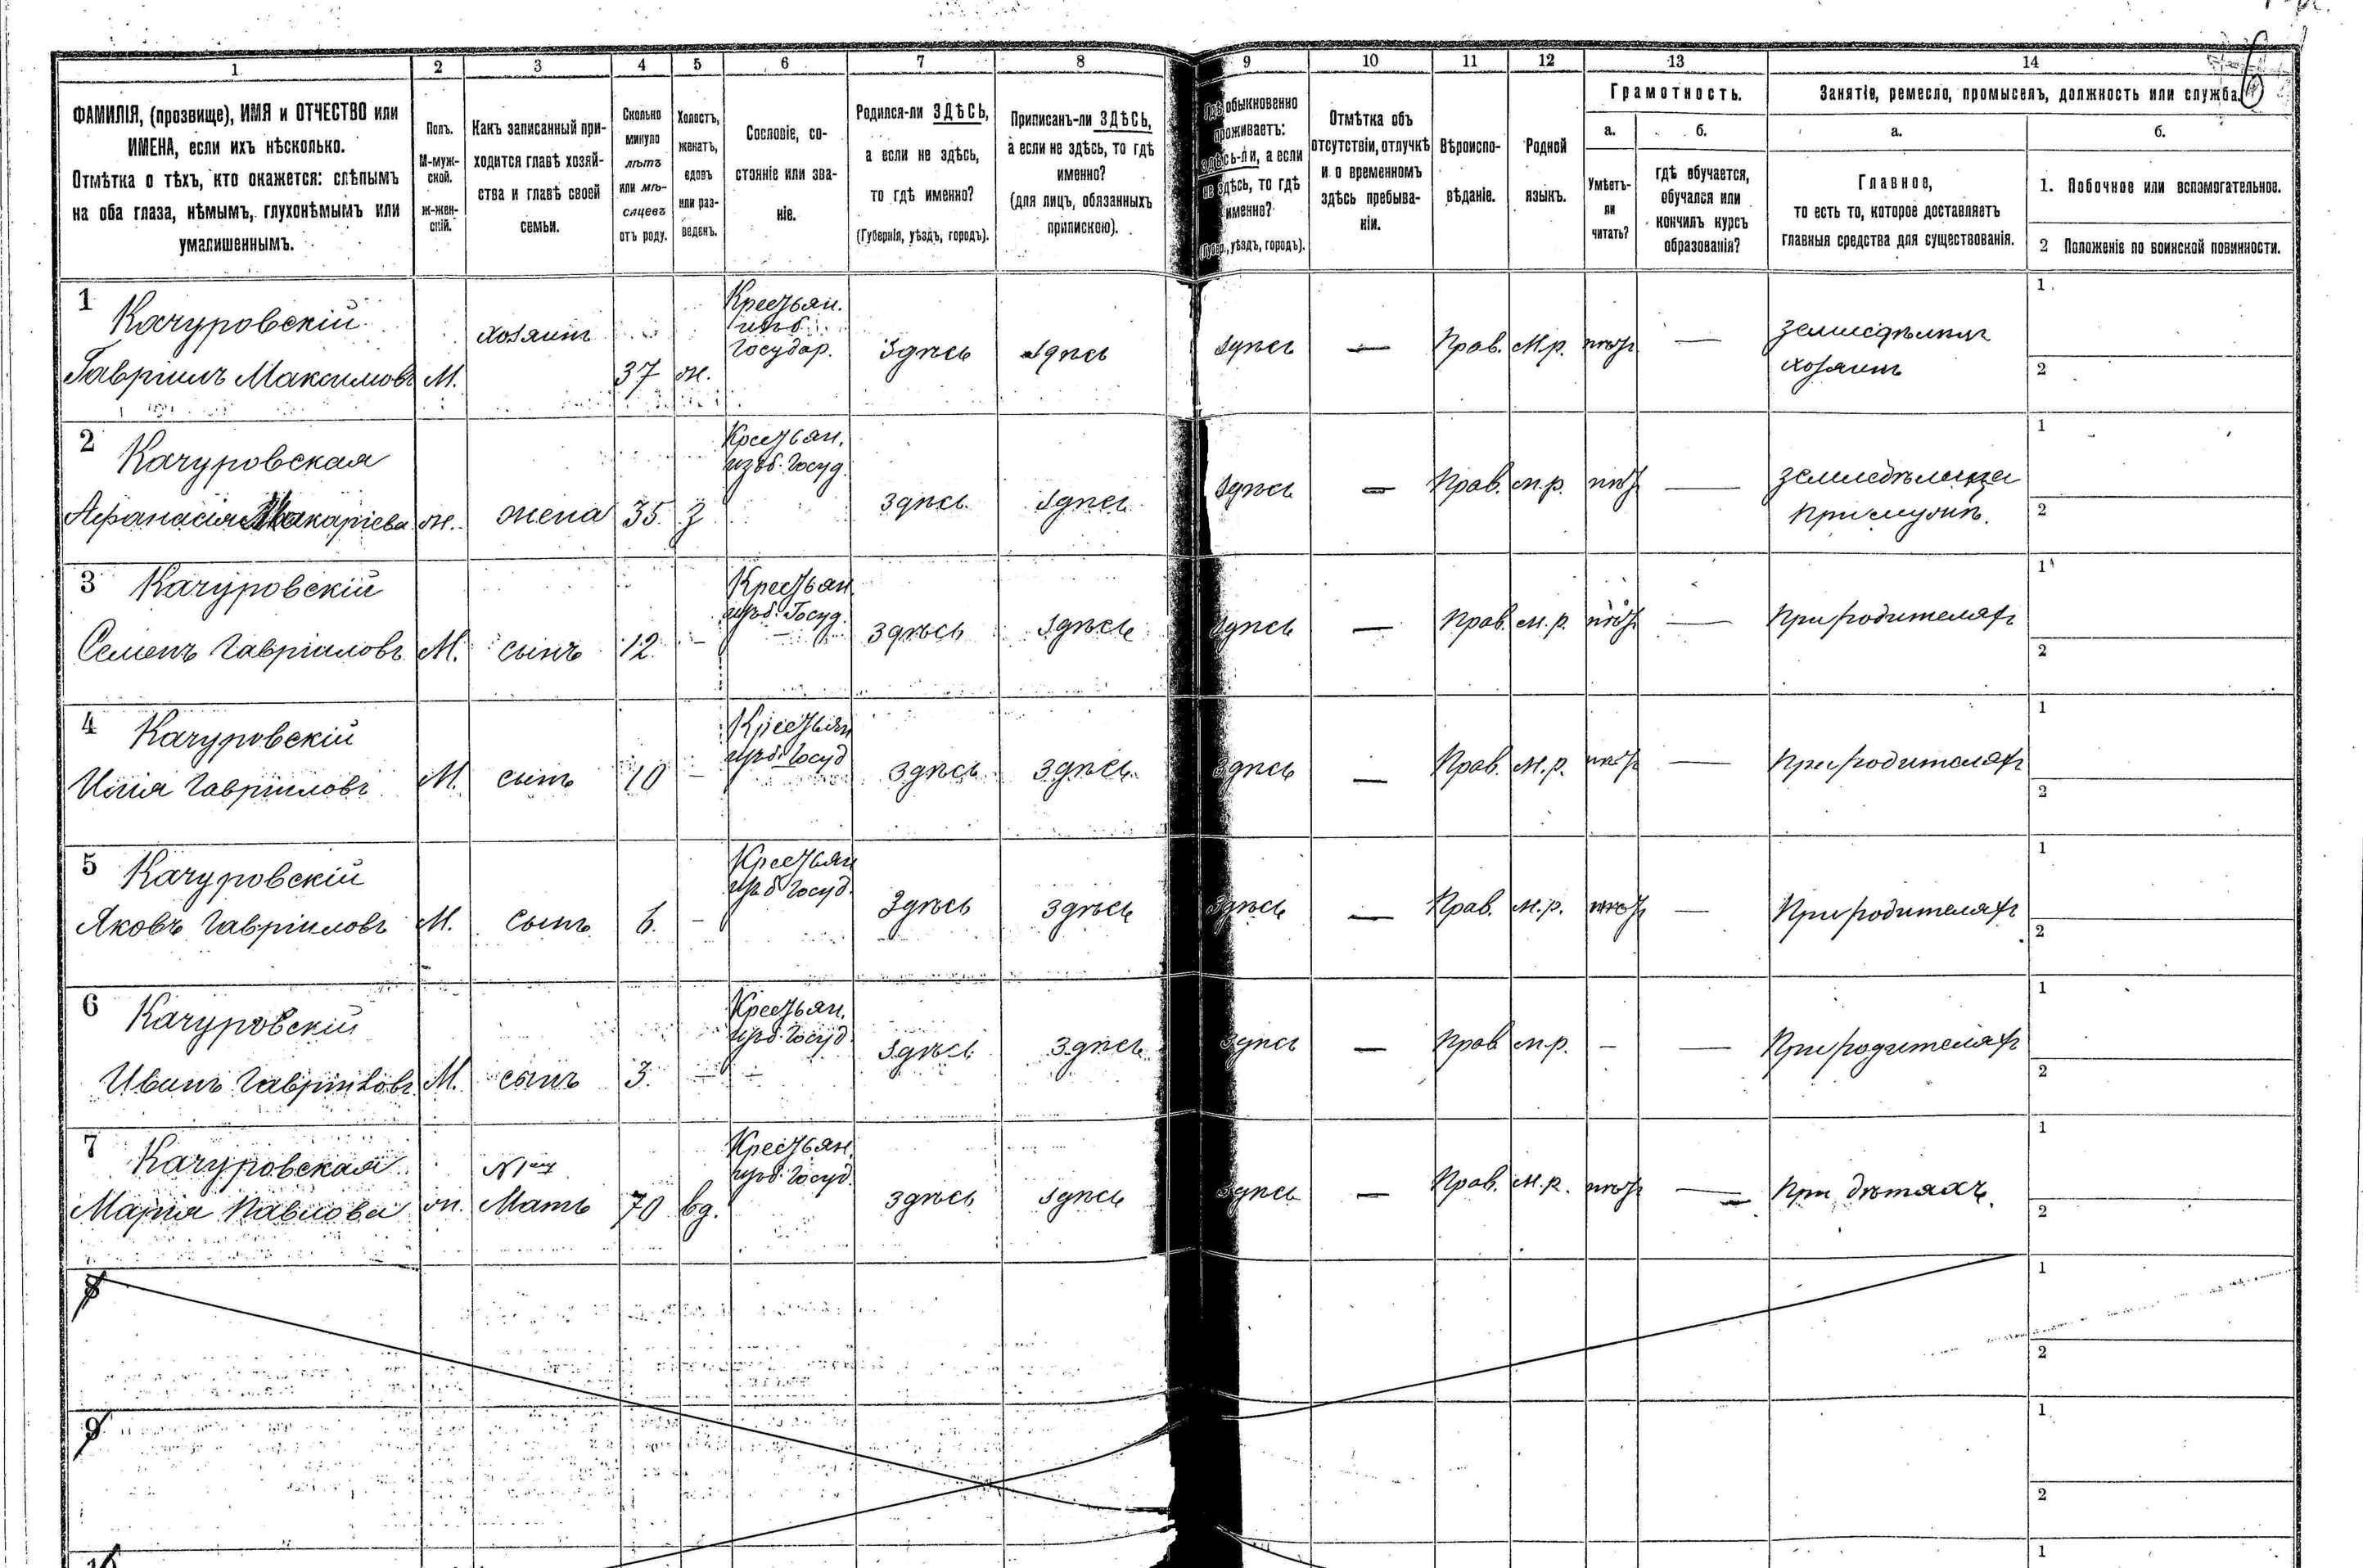 1 2 3 4 5 6 7 8 9 10 11 12 13 14
ФАМИЛІЯ, (прозвище), ИМЯ и ОТЧЕСТВО или
ИМЕНА, если ихъ нѣсколько.
Отмѣтка о тѣхъ, кто окажется: слѣпымъ
на оба глаза, нѣмымъ, глухонѣмымъ или
умалишеннымъ.
Полъ.
М-муж-
ской.
Ж-жен-
скій.
Какъ записанный при-
ходится главѣ хозяй-
ства и главѣ своей
семьи.
Сколько
минуло
лѣтъ
или мѣ-
сяцевъ
отъ роду.
Холостъ,
женатъ,
вдовъ
или раз-
веденъ.
Сословіе, со-
стояніе или зва-
ніе.
Родился-ли ЗДѢСЬ,
а если не здѣсь,
то гдѣ именно?
(Губернія, уѣздъ, городъ).
Приписанъ-ли ЗДѢСЬ,
а если не здѣсь, то гдѣ
именно?
(для лицъ, обязанныхъ
припискою).
Гдѣ обыкновенно
проживаетъ:
здѣсь-ли, а если
не здѣсь, то гдѣ
именно?
(Губер., уѣздъ, городъ).
Отмѣтка объ
отсутствіи, отлучкѣ
и о временномъ
здѣсь пребыва-
ніи.
Вѣроиспо-
вѣданіе.
Родной
языкъ.
Грамотность.
а.
Умѣетъ-
ли
читать?
б.
гдѣ обучается,
обучался или
кончилъ курсъ
образованія?
Занятіе, ремесло, промыселъ, должность или служба.
6
а.
Главное,
то есть то, которое доставляетъ
главныя средства для существованія.
б.
1. Побочное или вспомогательное.
2 Положеніе по воинской повинности.
1 Качуровскій
Гавріилъ Максимовъ
М.
хозяинъ
37
ж.
Крестьян.
изъ б.
Государ.
Здѣсь
Здѣсь
Здѣсь
—
Прав.
М.р.
нѣтъ
—
земледѣлецъ
хозяинъ
1
2
2 Качуровская
Афанасія Макаріева
ж.
жена
35
з
Крестьян.
изъ б. Госуд.
Здѣсь
Здѣсь
Здѣсь
—
Прав.
м.р.
нѣтъ
—
При мужѣ.
1
2
3 Качуровскій
Семенъ Гавріиловъ
М.
сынъ
12
-
Крестьян.
изъ б. Госуд.
Здѣсь
Здѣсь
Здѣсь
—
Прав.
м.р.
нѣтъ
—
При родителяхъ
1
2
4 Качуровскій
Илія Гавріиловъ
М.
сынъ
10
-
Крестьян
изъ б. Госуд
Здѣсь
Здѣсь
Здѣсь
—
Прав.
М.р.
нѣтъ
—
При родителяхъ
1
2
5 Качуровскій
Яковъ Гавріиловъ
М.
сынъ
6.
-
Крестьян
изъ б Госуд.
Здѣсь
Здѣсь
Здѣсь
—
Прав.
м.р.
нѣтъ
—
При родителяхъ
1
2
6 Качуровскій
Иванъ Гавріиловъ
М.
сынъ
3.
-
Крестьян.
изъ б. Госуд
Здѣсь
Здѣсь
Здѣсь
—
Прав
м.р.
-
—
При родителяхъ
1
2
7 Качуровская
Марія Павлова
ж.
Мать
70
вд.
Крестьян.
изъ б. Госуд.
Здѣсь
Здѣсь
Здѣсь
—
Прав.
М.р.
нѣтъ
—
При дѣтяхъ.
1
2
8
1
2
9
1
2
10
1